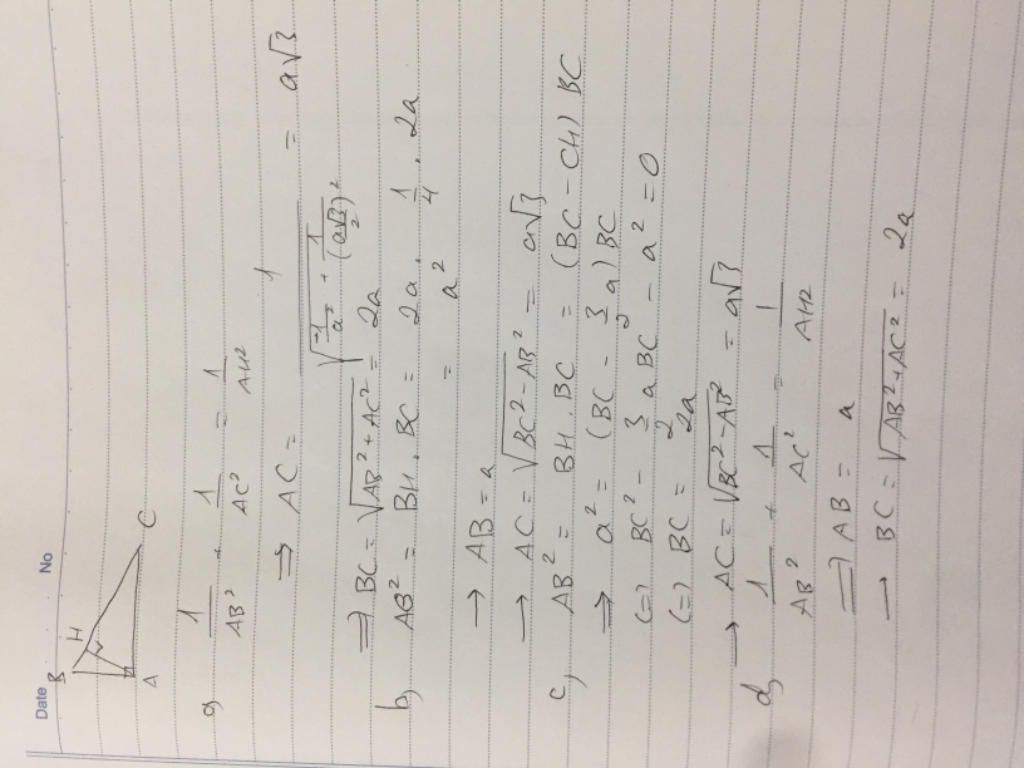 Date No
B
H
A
C
a, 1/AB² + 1/AC² = 1/AH²
⇒ AC = 1/√(1/a² + 1/(a√3/2)²) = a√3
⇒ BC = √(AB² + AC²) = 2a
b, AB² = BH. BC = 2a. 1/4. 2a
= a²
→ AB = a
→ AC = √(BC² - AB²) = a√3
c, AB² = BH. BC = (BC - CH) BC
⇒ a² = (BC - 3/2 a) BC
(=) BC² - 3/2 a BC - a² = 0
(=) BC = 2a
→ AC = √(BC² - AB²) = a√3
d, 1/AB² + 1/AC² = 1/AH²
⇒ AB = a
→ BC = √(AB² + AC²) = 2a